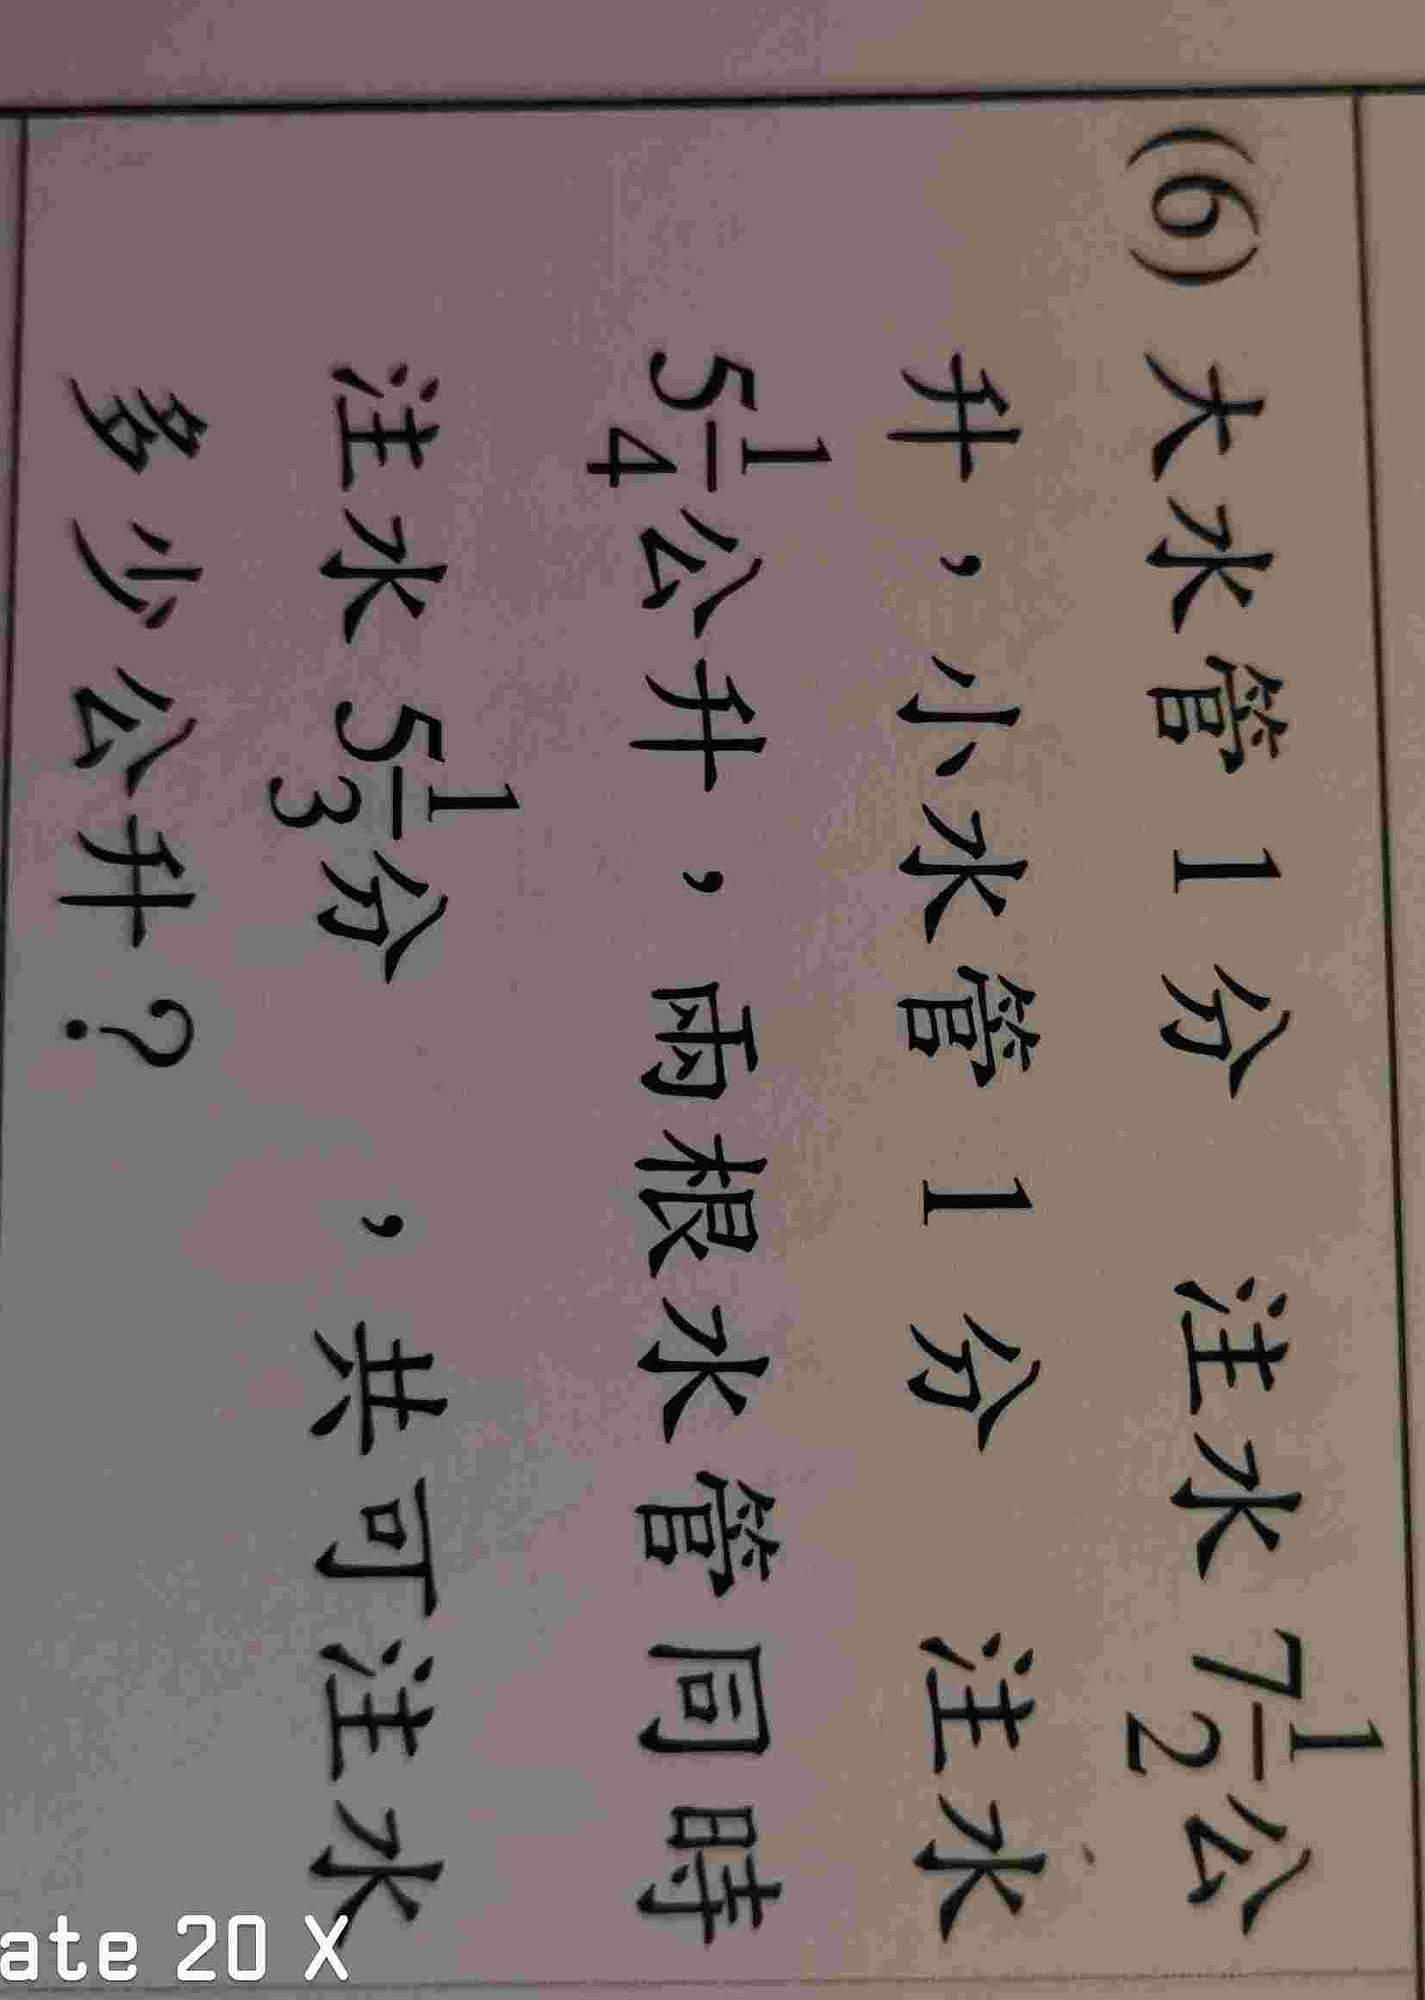 (6) 大水管 1 分 注水 7 1/2 公
升，小水管 1 分 注水
5 1/4 公升，兩根水管同時
注水 5 1/3 分 ，共可注水
多少公升？
ate 20 X